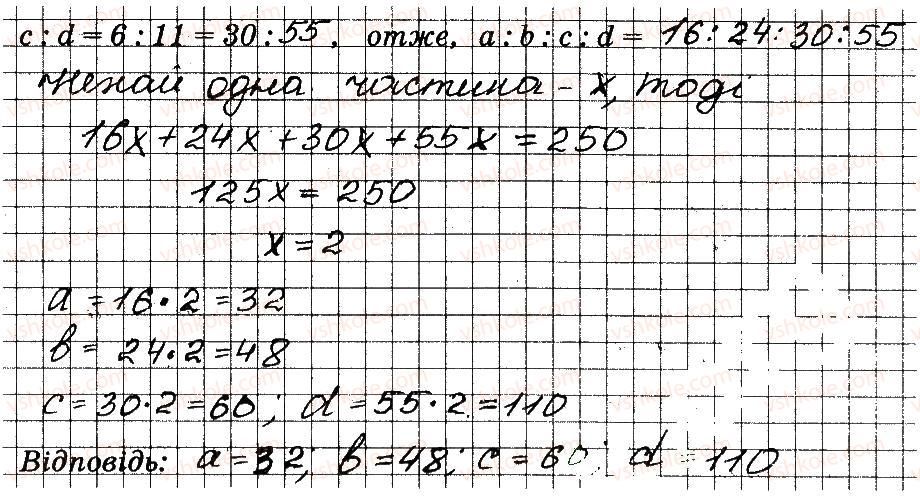 c : d = 6 : 11 = 30 : 55, отже, a : b : c : d = 16 : 24 : 30 : 55
Нехай одна частина - x, тоді
16x + 24x + 30x + 55x = 250
125x = 250
x = 2
a = 16 · 2 = 32
b = 24 · 2 = 48
c = 30 · 2 = 60; d = 55 · 2 = 110
Відповідь: a = 32; b = 48; c = 60; d = 110